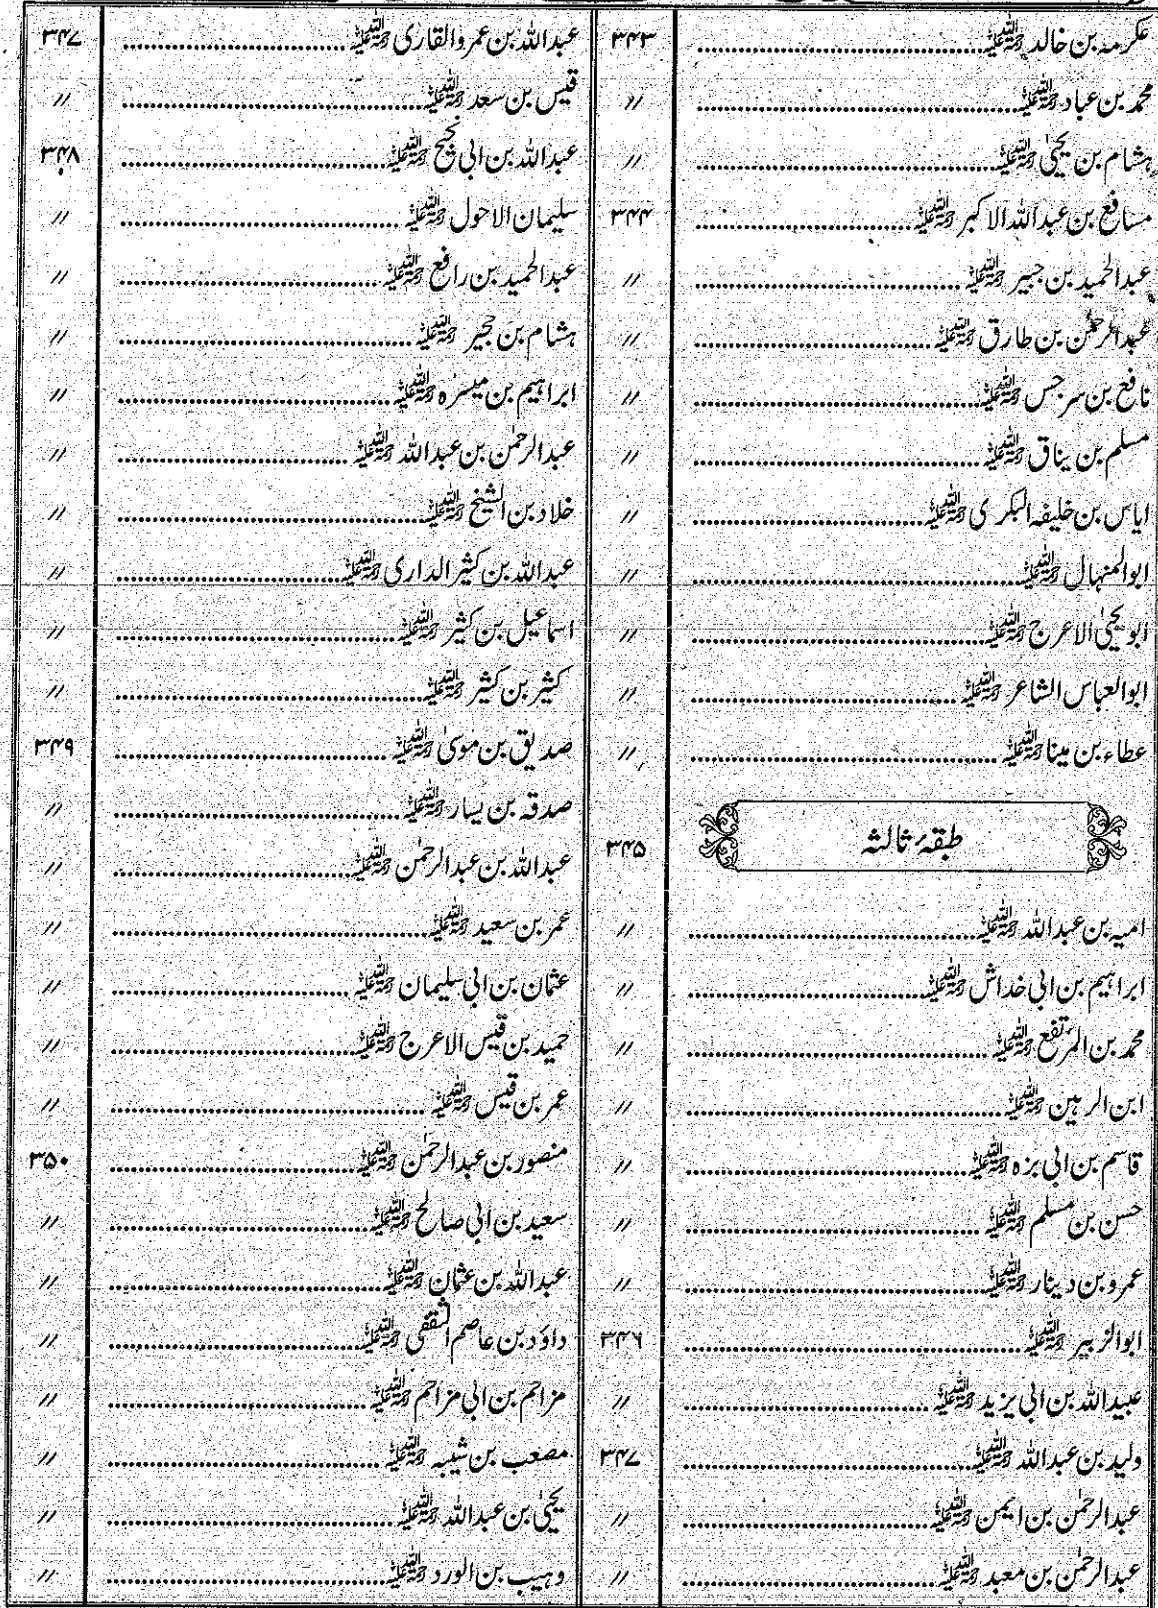 عکرمہ بن خالد رحمۃ اللہ علیہ ۳۴۳
محمد بن عباد رحمۃ اللہ علیہ //
ہشام بن یحییٰ رحمۃ اللہ علیہ //
مسافع بن عبداللہ الاکبر رحمۃ اللہ علیہ ۳۴۴
عبدالحمید بن جبیر رحمۃ اللہ علیہ //
عبدالرحمٰن بن طارق رحمۃ اللہ علیہ //
نافع بن سرجس رحمۃ اللہ علیہ //
مسلم بن یناق رحمۃ اللہ علیہ //
ایاس بن خلیفہ البکری رحمۃ اللہ علیہ //
ابوالمنہال رحمۃ اللہ علیہ //
ابویحییٰ الاعرج رحمۃ اللہ علیہ //
ابوالعباس الشاعر رحمۃ اللہ علیہ //
عطاء بن مینا رحمۃ اللہ علیہ //
طبقۂ ثالثہ ۳۴۵
امیہ بن عبداللہ رحمۃ اللہ علیہ //
ابراہیم بن ابی خداش رحمۃ اللہ علیہ //
محمد بن المرتفع رحمۃ اللہ علیہ //
ابن الرہین رحمۃ اللہ علیہ //
قاسم بن ابی بزہ رحمۃ اللہ علیہ //
حسن بن مسلم رحمۃ اللہ علیہ //
عمرو بن دینار رحمۃ اللہ علیہ //
ابوالزبیر رحمۃ اللہ علیہ ۳۴۶
عبیداللہ بن ابی یزید رحمۃ اللہ علیہ //
ولید بن عبداللہ رحمۃ اللہ علیہ ۳۴۷
عبدالرحمٰن بن ایمن رحمۃ اللہ علیہ //
عبدالرحمٰن بن معبد رحمۃ اللہ علیہ //
عبداللہ بن عمرو القاری رحمۃ اللہ علیہ ۳۴۷
قیس بن سعد رحمۃ اللہ علیہ //
عبداللہ بن ابی نجیح رحمۃ اللہ علیہ ۳۴۸
سلیمان الاحول رحمۃ اللہ علیہ //
عبدالحمید بن رافع رحمۃ اللہ علیہ //
ہشام بن حجیر رحمۃ اللہ علیہ //
ابراہیم بن میسرہ رحمۃ اللہ علیہ //
عبدالرحمٰن بن عبداللہ رحمۃ اللہ علیہ //
خلاد بن الشیخ رحمۃ اللہ علیہ //
عبداللہ بن کثیر الداری رحمۃ اللہ علیہ //
اسماعیل بن کثیر رحمۃ اللہ علیہ //
کثیر بن کثیر رحمۃ اللہ علیہ //
صدیق بن موسیٰ رحمۃ اللہ علیہ ۳۴۹
صدقہ بن یسار رحمۃ اللہ علیہ //
عبداللہ بن عبدالرحمٰن رحمۃ اللہ علیہ //
عمر بن سعید رحمۃ اللہ علیہ //
عثمان بن ابی سلیمان رحمۃ اللہ علیہ //
حمید بن قیس الاعرج رحمۃ اللہ علیہ //
عمر بن قیس رحمۃ اللہ علیہ //
منصور بن عبدالرحمٰن رحمۃ اللہ علیہ ۳۵۰
سعید بن ابی صالح رحمۃ اللہ علیہ //
عبداللہ بن عثمان رحمۃ اللہ علیہ //
داؤد بن عاصم الثقفی رحمۃ اللہ علیہ //
مزاحم بن ابی مزاحم رحمۃ اللہ علیہ //
مصعب بن شیبہ رحمۃ اللہ علیہ //
یحییٰ بن عبداللہ رحمۃ اللہ علیہ //
وہیب بن الورد رحمۃ اللہ علیہ //